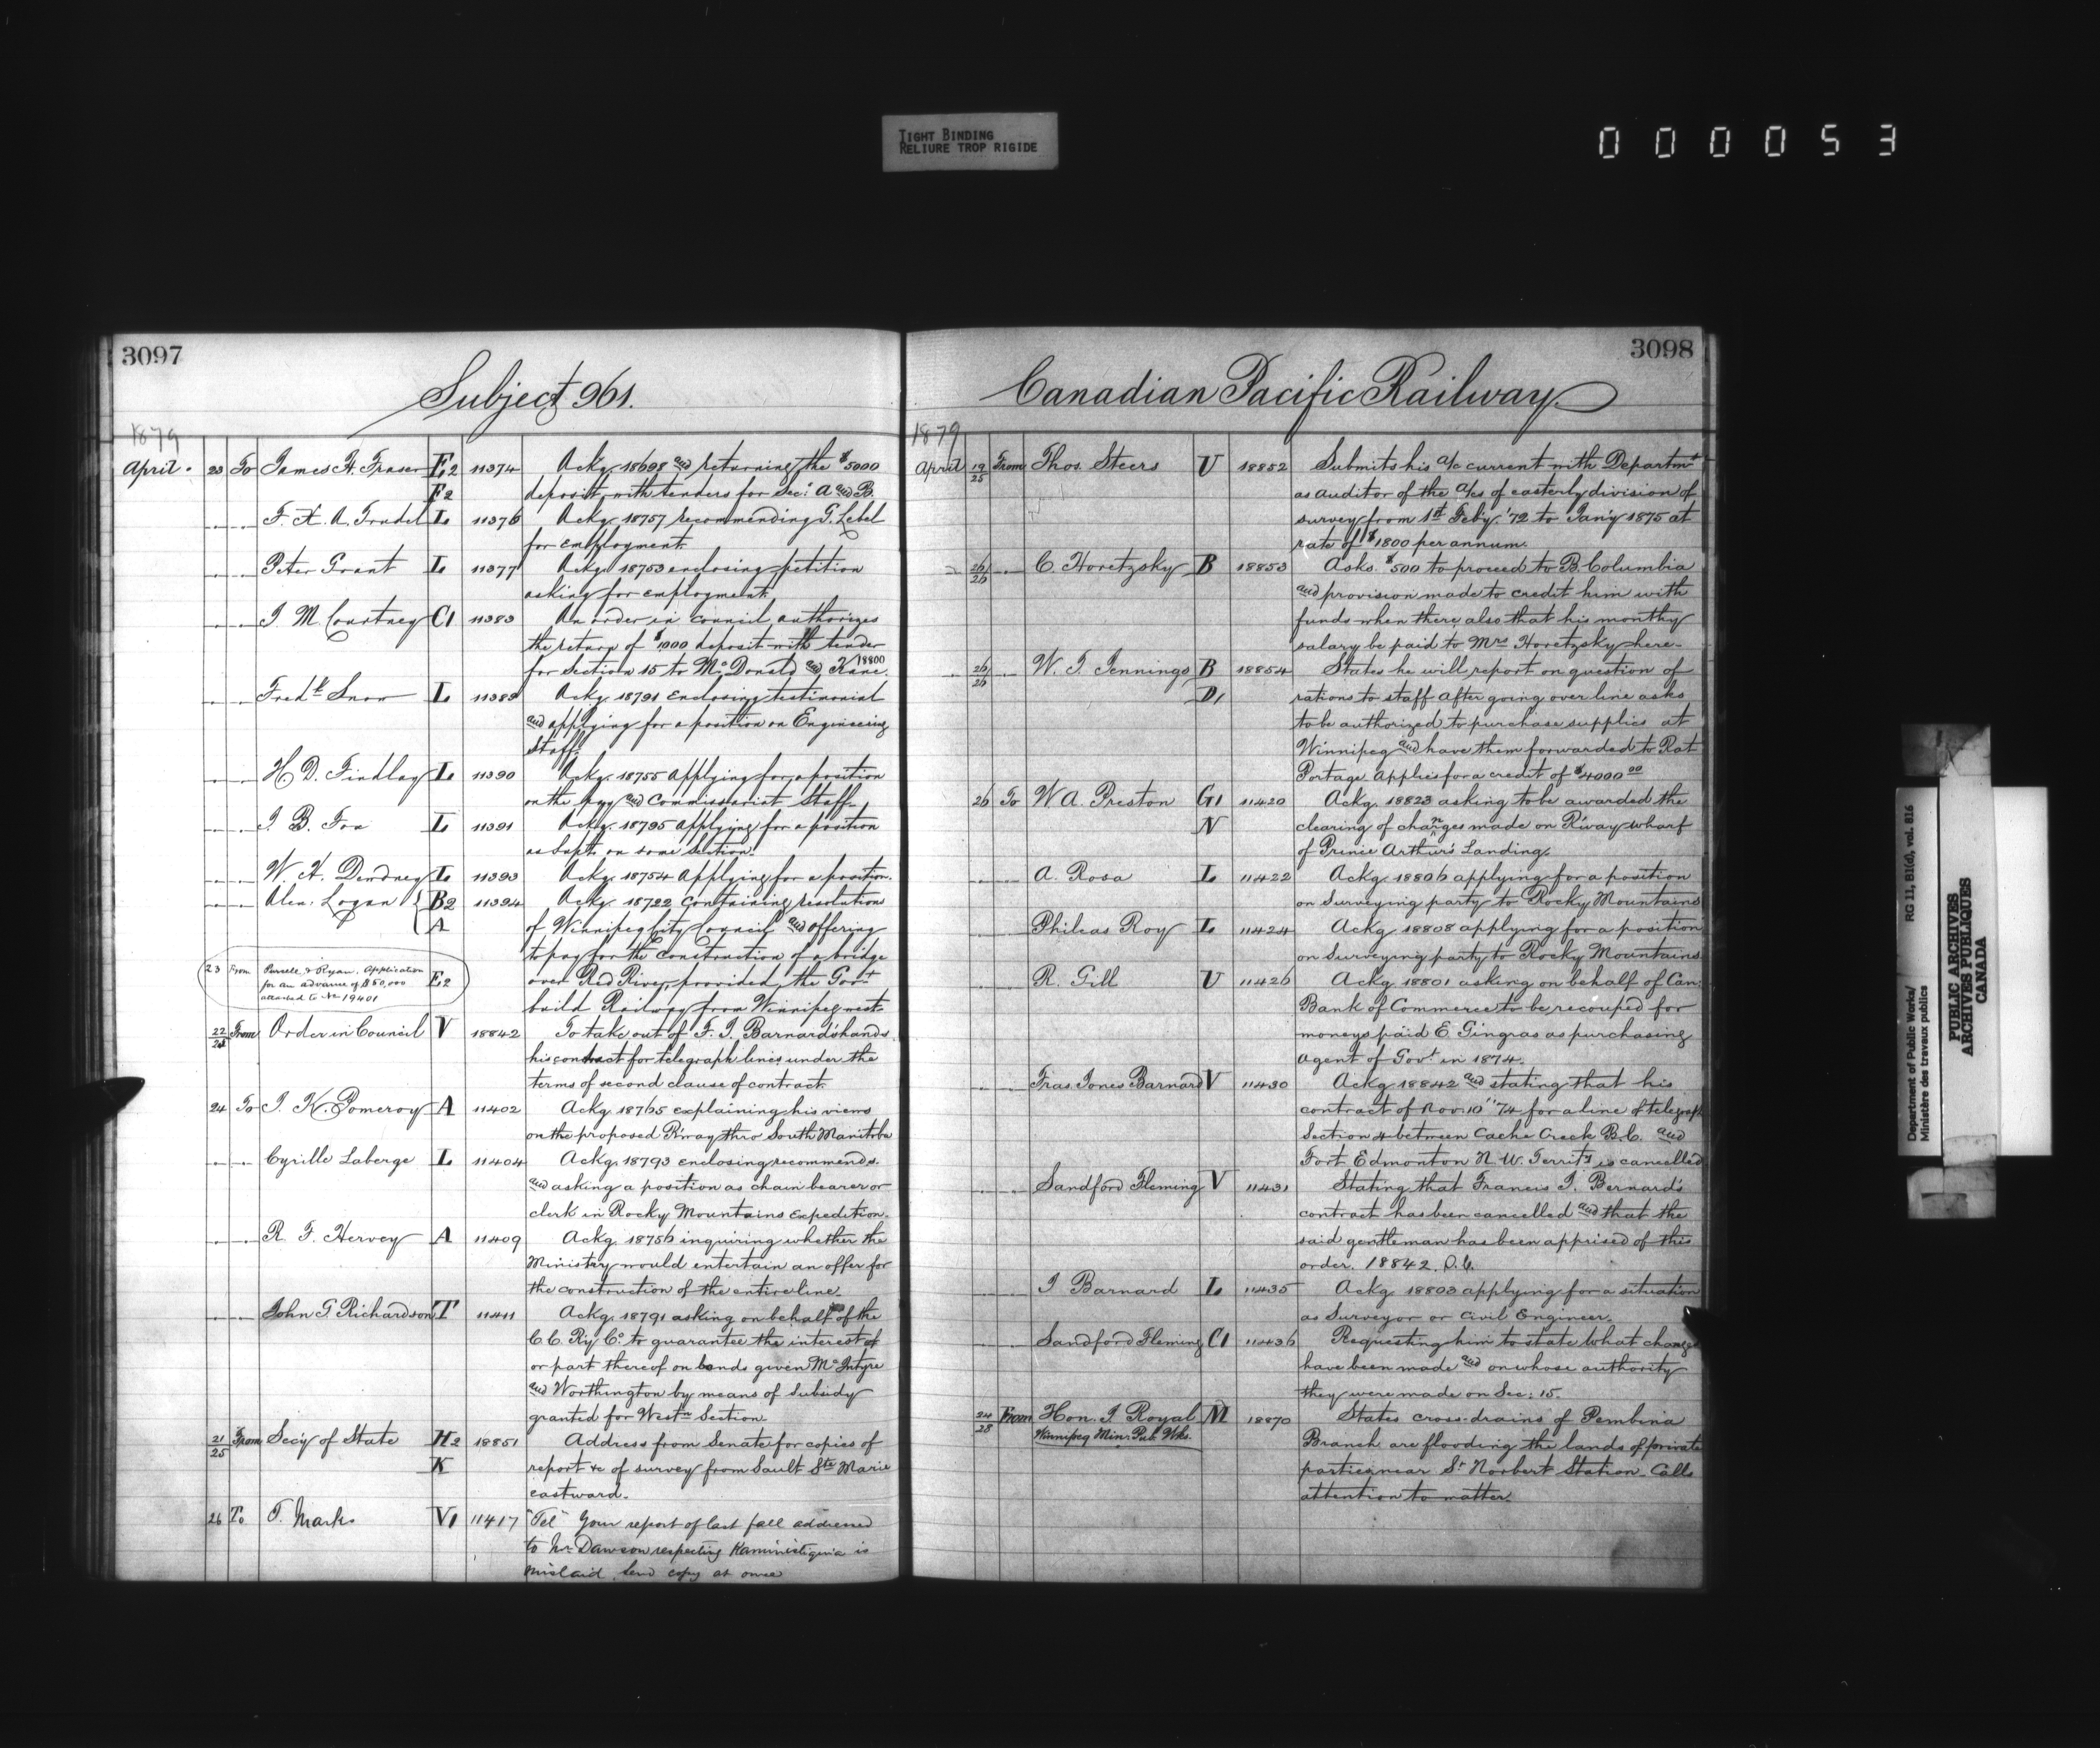 TIGHT BINDING
RELIURE TROP RIGIDE
000053
3097
Subject 961.
1879
April. 23 To James H. Fraser E2 11374 Ackg. 18698 and returning the $5000
F2 deposit with tenders for Sec: A and B.
F. X. A. Trudel L 11376 Ackg. 18757 recommending G. Lebel
for employment.
Peter Grant L 11377 Ackg. 18753 enclosing petition
asking for employment.
J. M. Courtney C1 11383 An order in Council authorizes
the return of $1000 deposit with tender
for Section 15 to McDonald and Kane. 18800
Fredk Snow L 11389 Ackg. 18791 enclosing testimonial
and applying for a position on Engineering
Staff.
H. D. Findlay L 11390 Ackg. 18755 applying for a position
on the Ry and Commissariat Staff.
J. B. Fox L 11391 Ackg. 18795 applying for a position
as Supt. on some Section.
W. H. Dendney L 11393 Ackg. 18754 applying for a position.
Alex. Logan B2 11394 Ackg. 18722 containing resolution
A of Winnipeg City Council and offering
to pay for the construction of a bridge
over Red River, provided the Govt
build Railway from Winnipeg west.
23 From Purcell & Ryan. Application E2
for an advance of $50,000
attached to No 19401
22/24 From Order in Council V 18842 To take out of F. J. Barnard's hands
his contract for telegraph lines under the
terms of second clause of contract.
24 To J. K. Pomeroy A 11402 Ackg. 18765 explaining his views
on the proposed R'way thro' South Manitoba
Cyrille Laberge L 11404 Ackg. 18793 enclosing recommends.
and asking a position as chain bearer or
clerk in Rocky Mountains Expedition.
R. F. Hervey A 11409 Ackg. 18756 inquiring whether the
Ministry would entertain an offer for
the construction of the entire line.
John G. Richardson T 11411 Ackg. 18791 asking on behalf of the
C. C. Ry Co. to guarantee the interest of
or part thereof on bonds given McIntyre
and Worthington by means of subsidy
granted for Westn Section.
21/25 From Secy of State H2 18851 Address from Senate for copies of
K report &c of survey from Sault Ste Marie
eastward.
26 To T. Marks V1 11417 "Tel" Your report of last fall addressed
to Mr Dawson respecting Kaministiquia is
mislaid. Send copy at once
3098
Canadian Pacific Railway.
1879
April 19/25 From Thos. Steers U 18852 Submits his a/c current with Departmt
as auditor of the a/cs of easterly division of
survey from 1st Feby. '72 to Jan'y 1875 at
rate of $1800 per annum.
26/26 C. Horetzsky B 18853 Asks $500 to proceed to B. Columbia
and provision made to credit him with
funds when there, also that his monthy
salary be paid to Mrs Horetzsky here.
26/26 W. T. Jennings B 18854 States he will report on question of
D1 rations to staff after going over line asks
to be authorized to purchase supplies at
Winnipeg and have them forwarded to Rat
Portage. Applies for a credit of $4000 00
26 To W. A. Preston G1 11420 Ackg. 18823 asking to be awarded the
N clearing of changes made on R'way wharf
of Prince Arthur's Landing.
A. Rosa L 11422 Ackg. 18806 applying for a position
on Surveying party to Rocky Mountains
Phileas Roy L 11424 Ackg. 18808 applying for a position
on surveying party to Rocky Mountains.
R. Gill U 11426 Ackg. 18801 asking on behalf of Can:
Bank of Commerce to be recouped for
moneys paid E. Gingras as purchasing
agent of Govt. in 1874.
Fras. Jones Barnard V 11430 Ackg 18842 and stating that his
contract of Nov. 10" '74 for a line of telegraph
Section 4 between Cache Creek B.C. and
Fort Edmonton N. W. Territy is cancelled
Sandford Fleming V 11431 Stating that Francis J. Bernard's
contract has been cancelled and that the
said gentleman has been apprised of this
order. 18842. O.C.
J Barnard L 11435 Ackg 18803 applying for a situation
as Surveyor or Civil Engineer.
Sandford Fleming C1 11436 Requesting him to state what changes
have been made and on whose authority
they were made on Sec: 15.
24/28 From Hon. J. Royal M 18870 States cross-drains of Pembina
Winnipeg Minr. Pub. Wks. Branch are flooding the lands of private
parties near St. Norbert Station. Calls
attention to matter.
Department of Public Works/
Ministère des travaux publics
RG 11, B1(d), vol. 816
PUBLIC ARCHIVES
ARCHIVES PUBLIQUES
CANADA